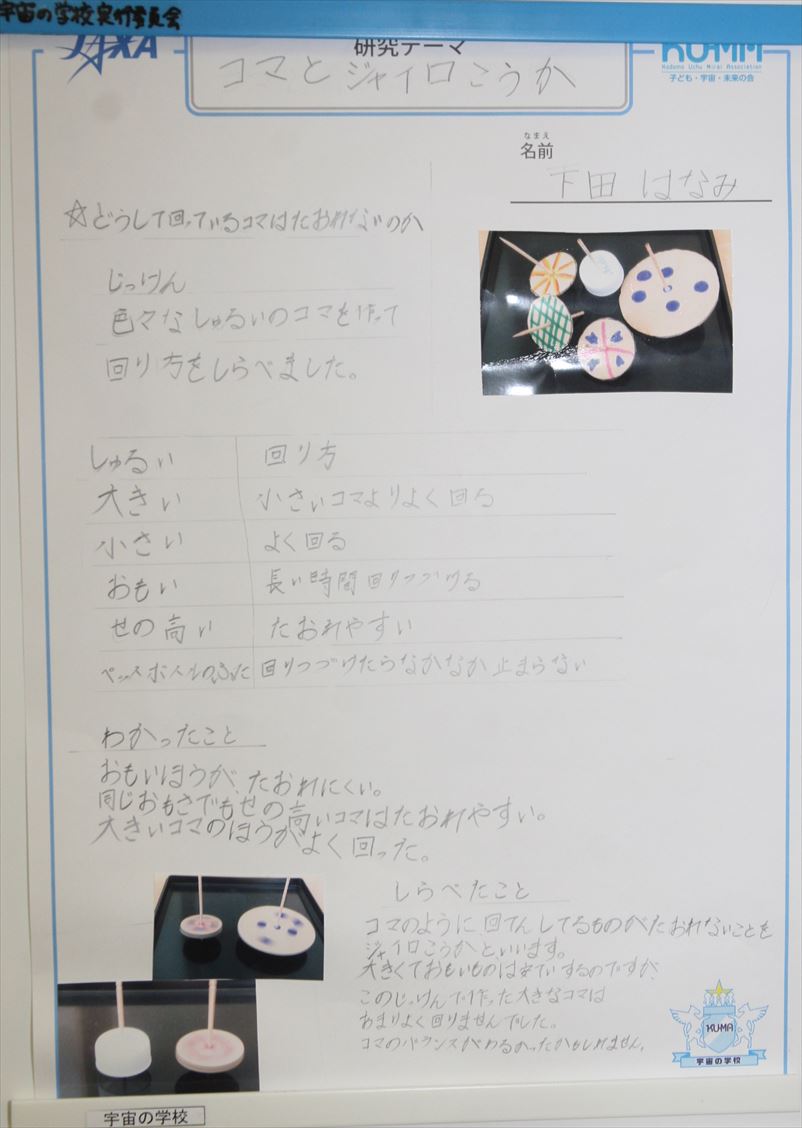 宇宙の学校実行委員会
JAXA
研究テーマ
コマとジャイロこうか
KUMA
Kodomo Uchu Mirai Association
子ども・宇宙・未来の会
なまえ
名前
下田 はなみ
☆どうして回っているコマはたおれないのか
じっけん
色々なしゅるいのコマを作って
回り方をしらべました。
しゅるい 回り方
大きい 小さいコマよりよく回る
小さい よく回る
おもい 長い時間回りつづける
せの高い たおれやすい
ペットボトルのふた 回りつづけたらなかなか止まらない
わかったこと
おもいほうが、たおれにくい。
同じおもさでもせの高いコマはたおれやすい。
大きいコマのほうがよく回った。
しらべたこと
コマのように回てんしてるものがたおれないことを
ジャイロこうかといいます。
大きくておもいものはあんていするのですが、
このじっけんで作った大きなコマは
あまりよく回りませんでした。
コマのバランスがわるかったかもしれません。
KUMA
宇宙の学校
宇宙の学校